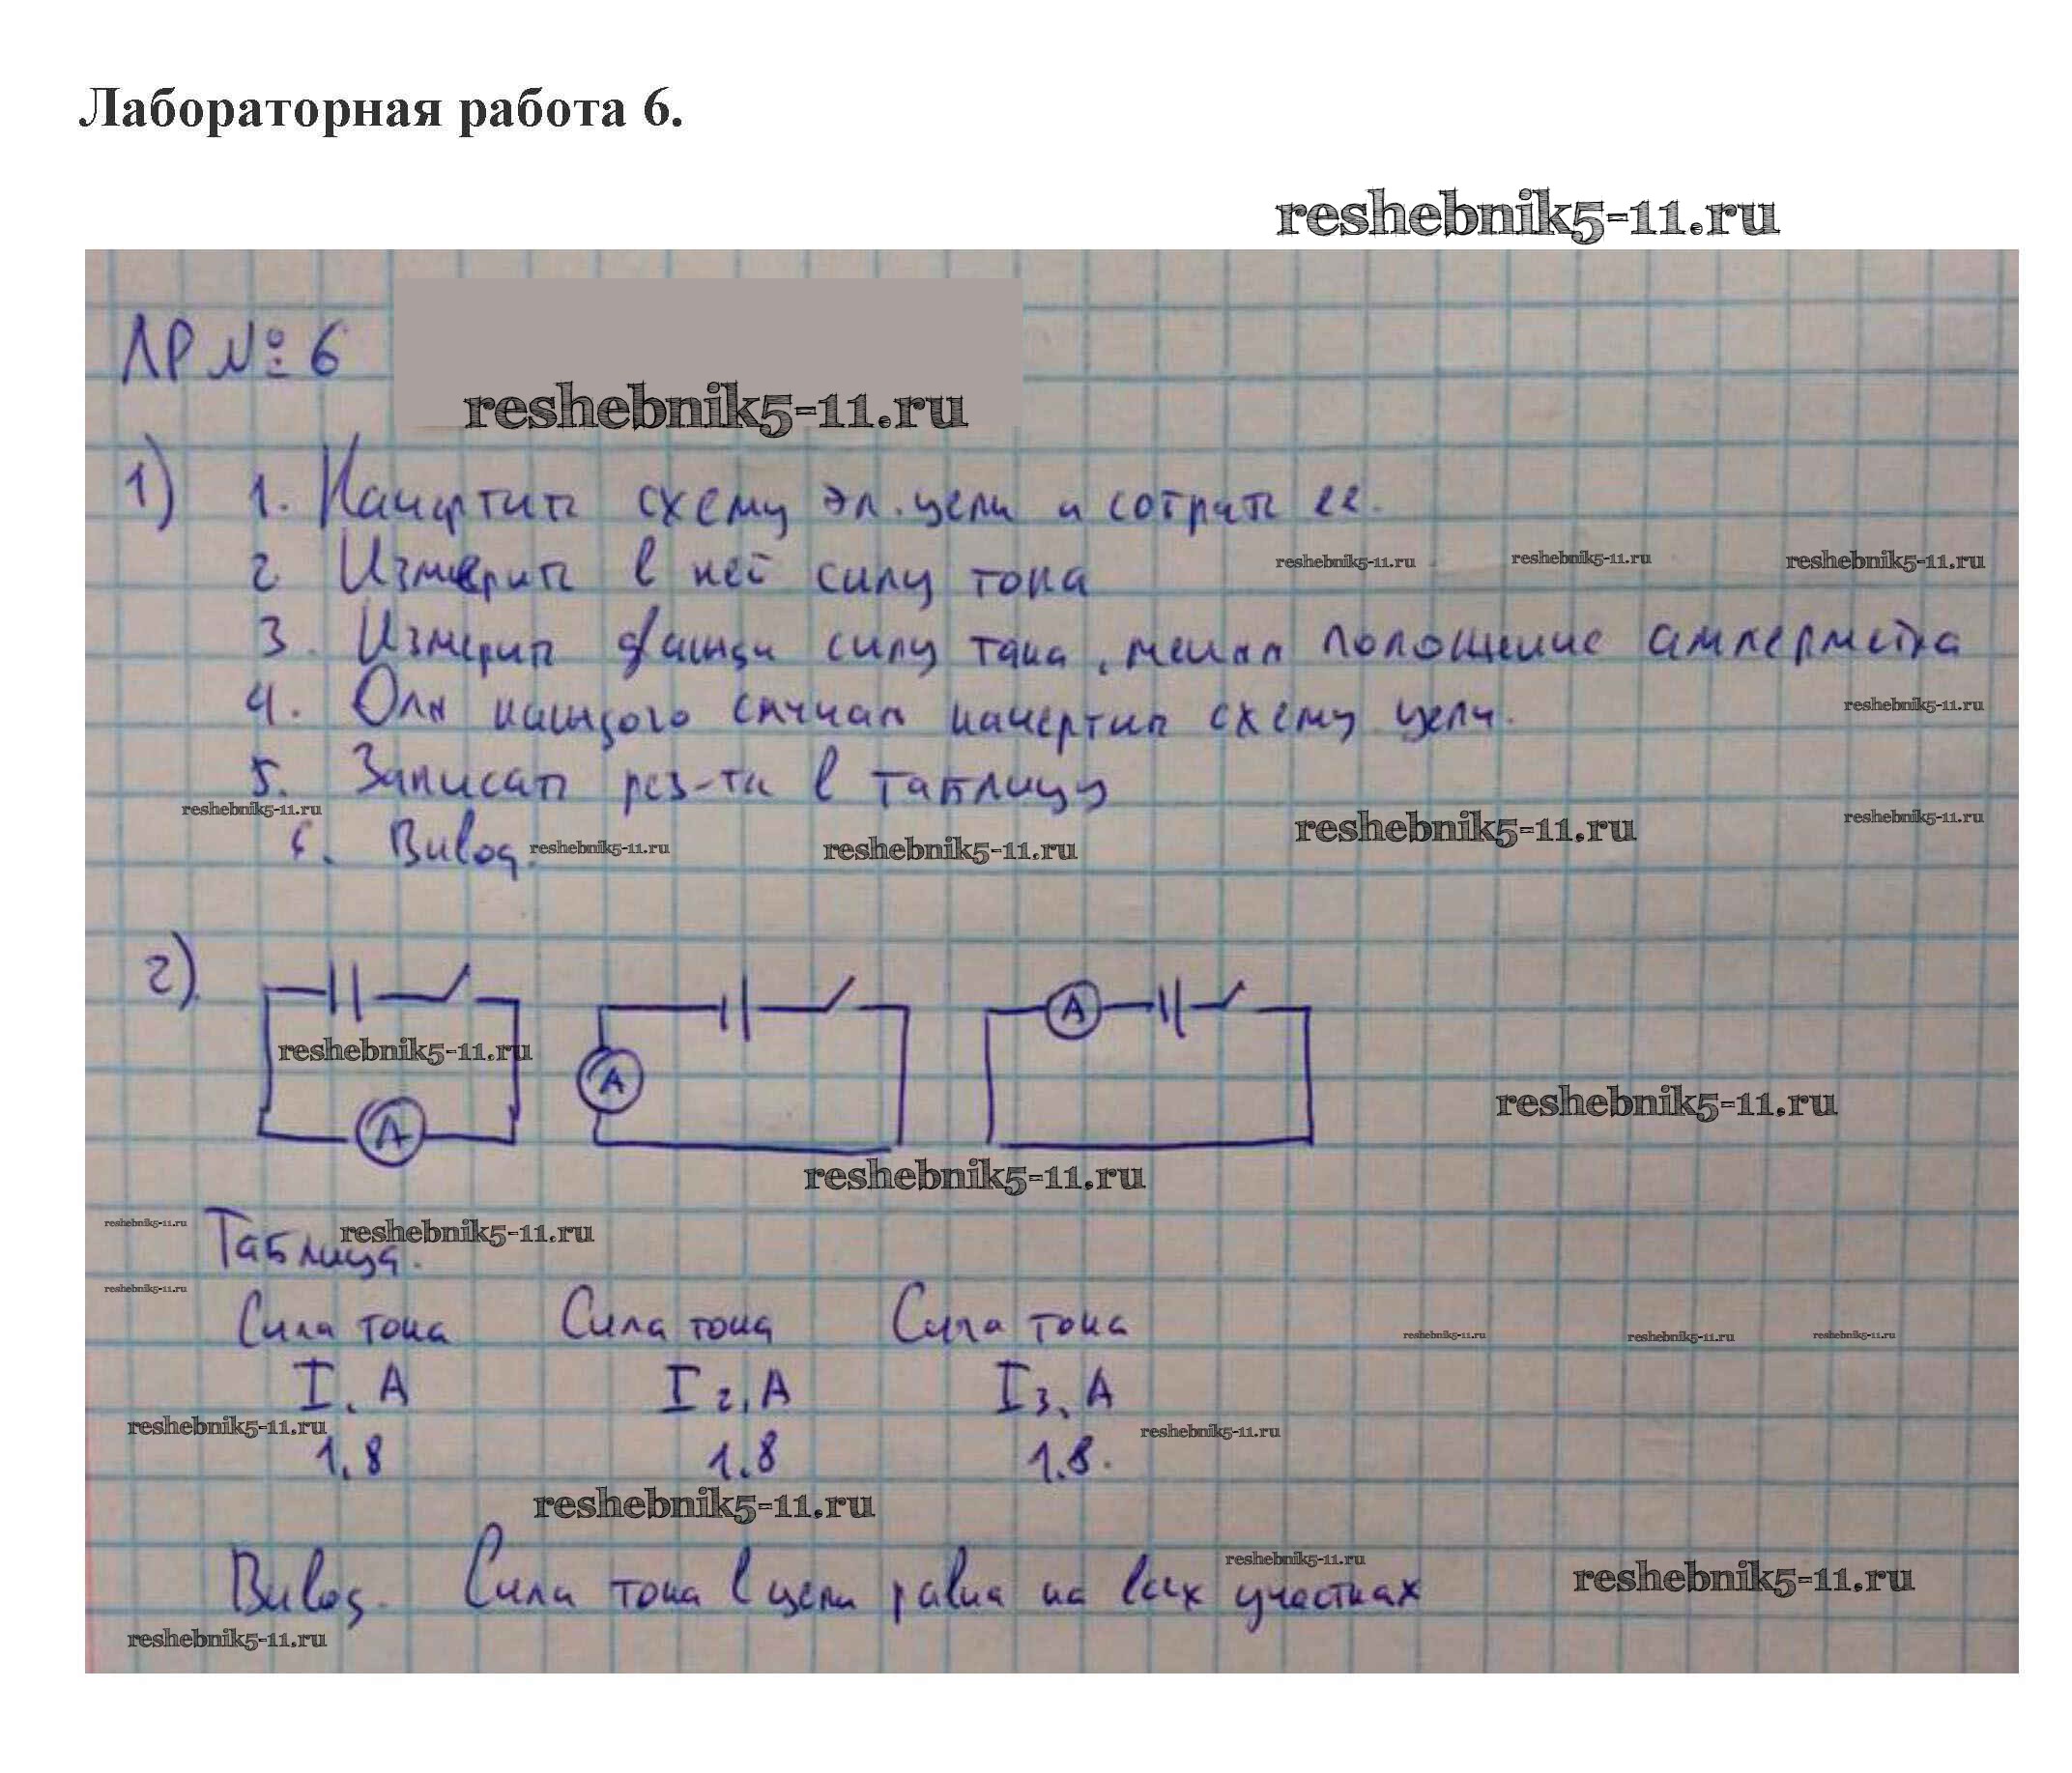 Лабораторная работа 6.
reshebnik5-11.ru
ЛР №6
reshebnik5-11.ru
1) 1. Начертить схему эл. цепи и собрать ее.
2 Измерить в ней силу тока
reshebnik5-11.ru reshebnik5-11.ru reshebnik5-11.ru
3. Измерить силу тока, меняя положение амперметра
4. Для каждого случая начертить схему цепи.
reshebnik5-11.ru
5. Записать рез-ты в таблицу
reshebnik5-11.ru reshebnik5-11.ru reshebnik5-11.ru
6. Вывод.
reshebnik5-11.ru reshebnik5-11.ru
2)
A A A
reshebnik5-11.ru
reshebnik5-11.ru
reshebnik5-11.ru
reshebnik5-11.ru reshebnik5-11.ru
Таблица.
reshebnik5-11.ru
Сила тока Сила тока Сила тока
reshebnik5-11.ru reshebnik5-11.ru reshebnik5-11.ru
I, A I2, A I3, A
reshebnik5-11.ru reshebnik5-11.ru
1,8 1.8 1.8.
reshebnik5-11.ru
reshebnik5-11.ru reshebnik5-11.ru
Вывод. Сила тока в цепи равна на всех участках
reshebnik5-11.ru